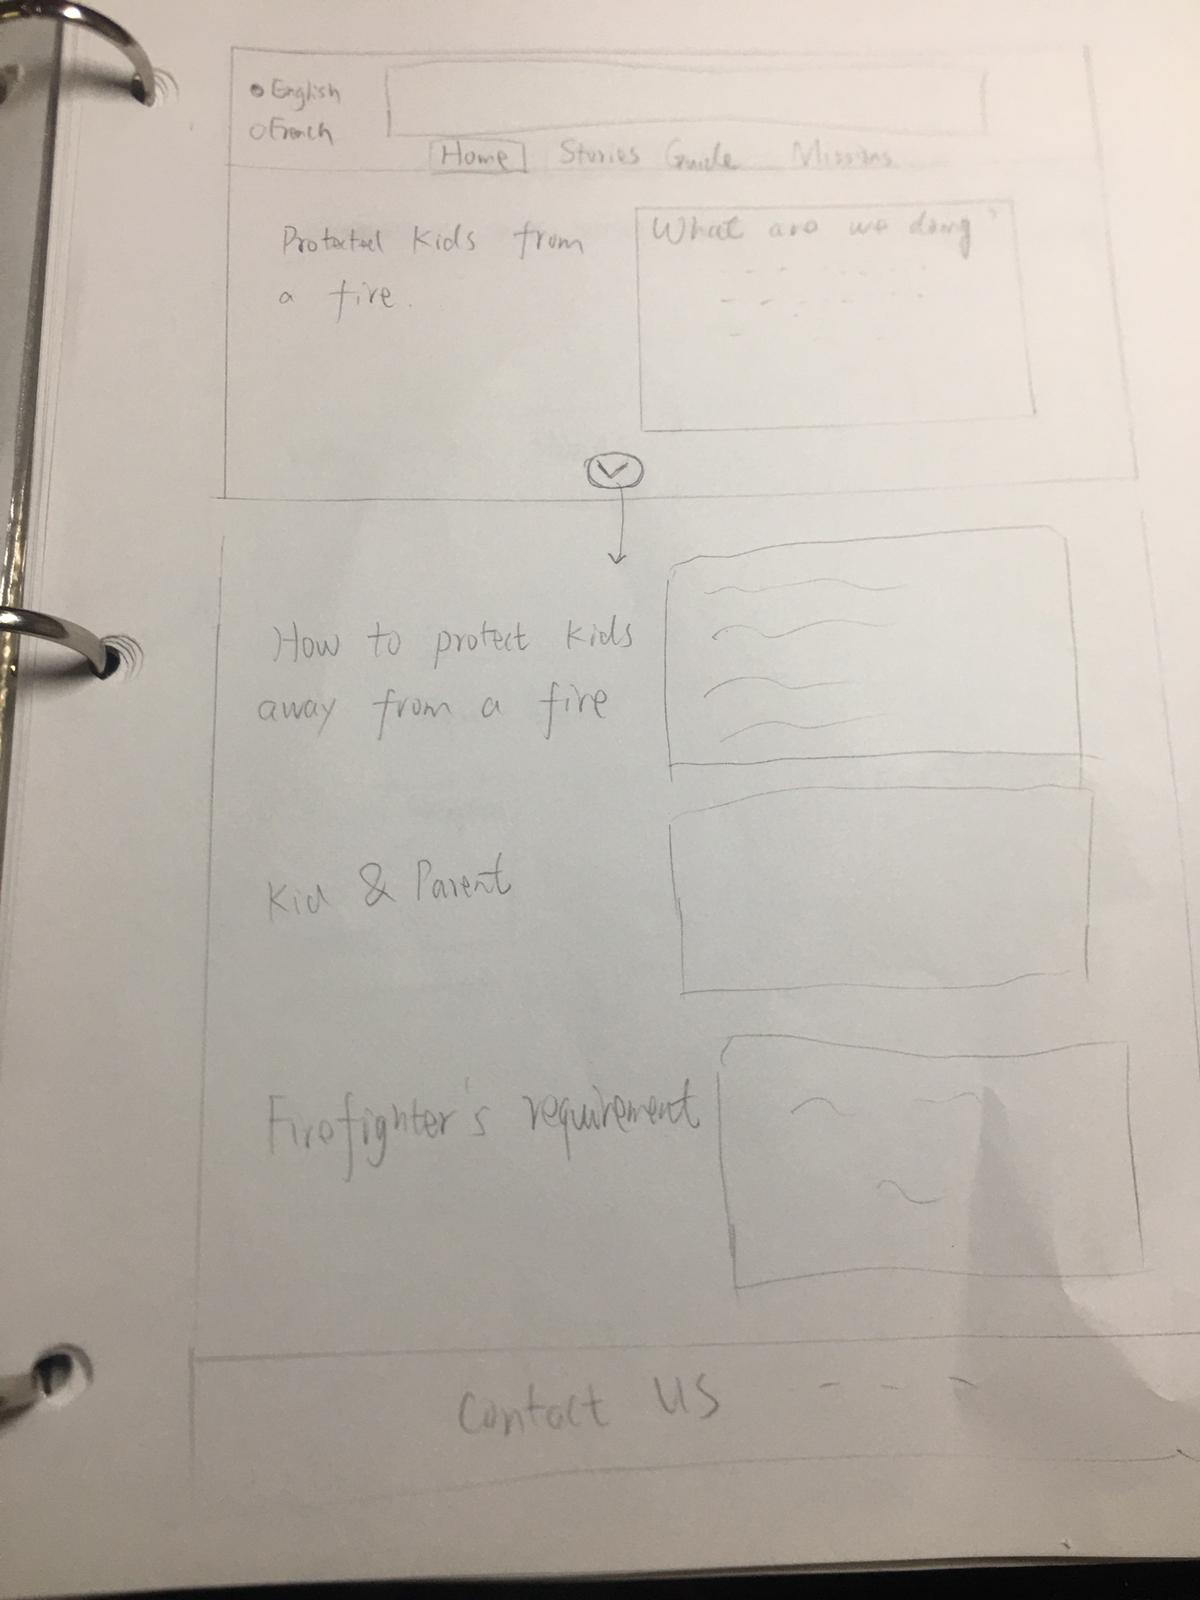 English
French
Home Stories Guide Missions
Protected kids from
a fire.
What are we doing?
How to protect kids
away from a fire
Kid & Parent
Firefighter's requirement
Contact US